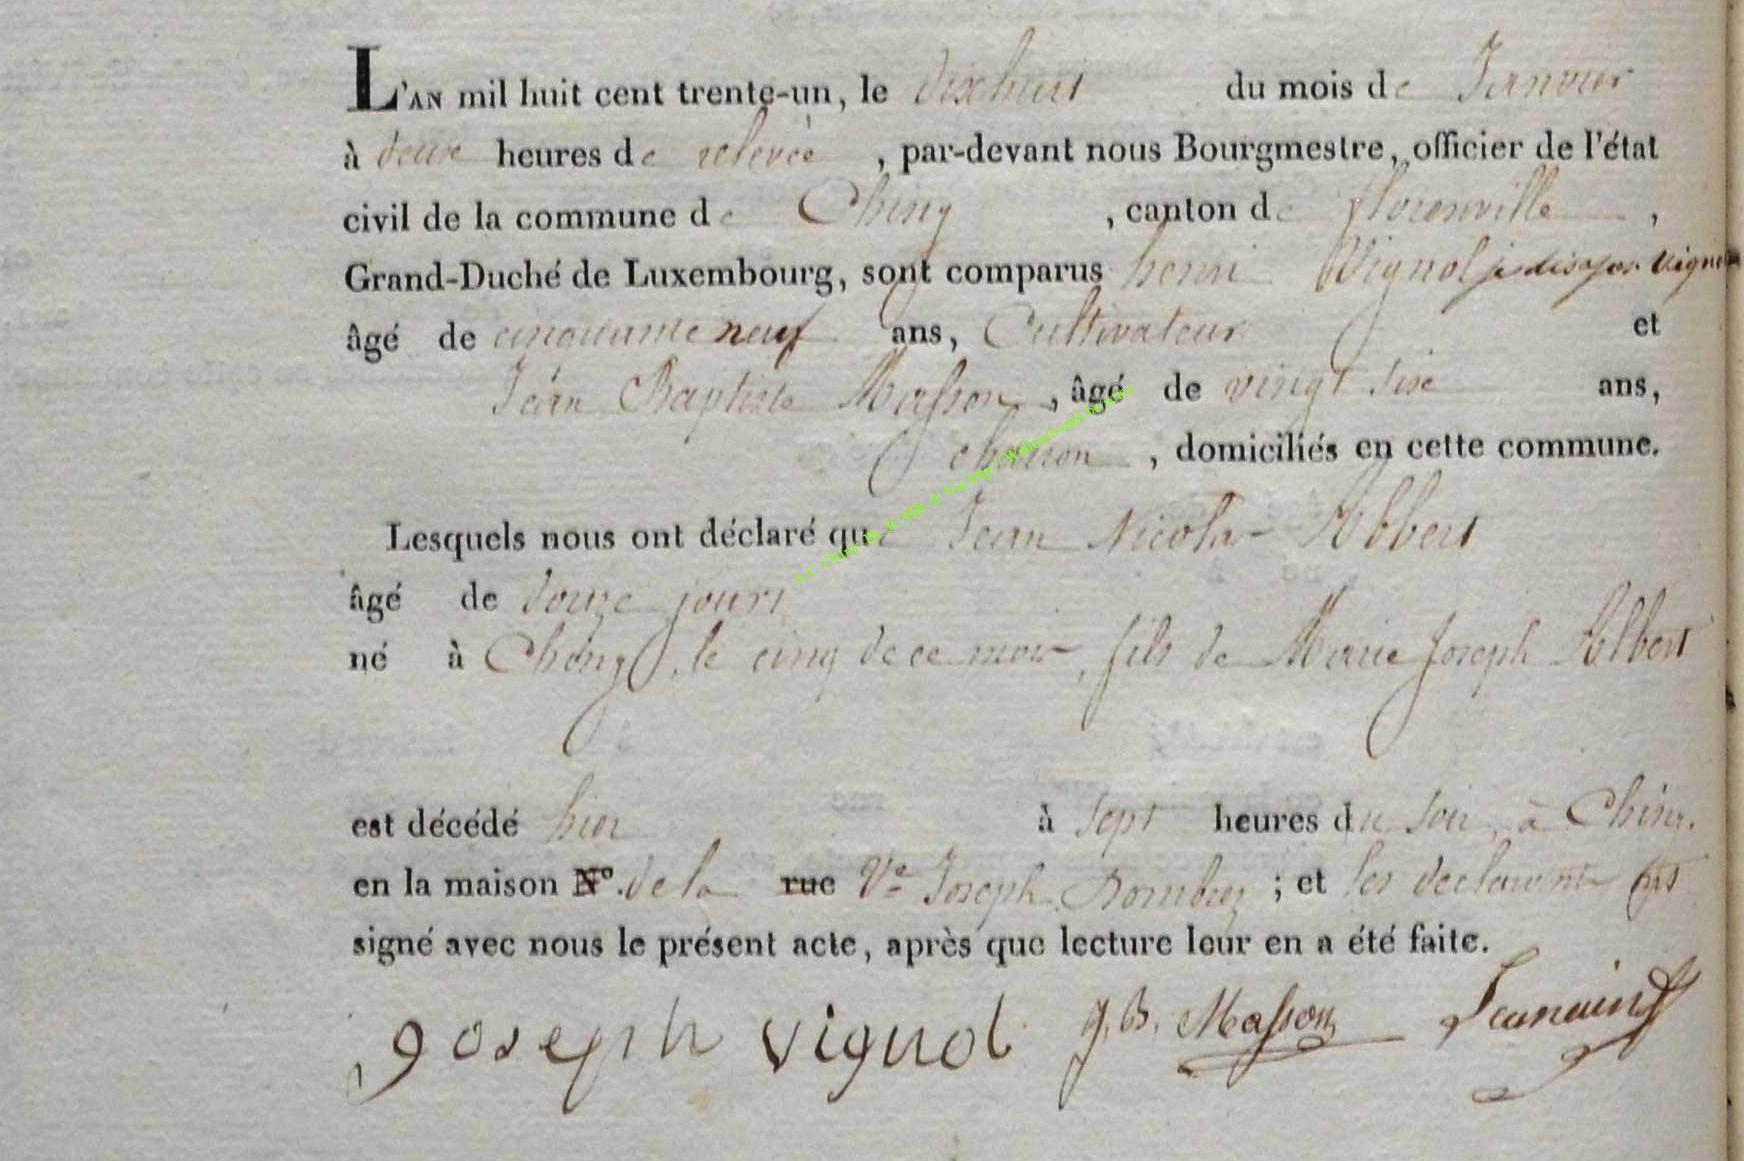 L'AN mil huit cent trente-un, le dixhuit du mois de Janvier
à deux heures de relevée, par-devant nous Bourgmestre, officier de l'état
civil de la commune de Chiny, canton de florenville,
Grand-Duché de Luxembourg, sont comparus henri Vignol je dis jos. Vignol
âgé de cinquante neuf ans, Cultivateur et
Jean Baptiste Masson, âgé de vingt six ans,
charon, domiciliés en cette commune.
Lesquels nous ont déclaré que Jean Nicolas Albert
âgé de douze jours
né à Chiny, le cinq de ce mois, fils de Marie Joseph Albert
est décédé hier à sept heures du soir, à Chiny.
en la maison N°. de la rue Ve Joseph ; et les déclarants ont
signé avec nous le présent acte, après que lecture leur en a été faite.
Joseph vignol J. B. Masson